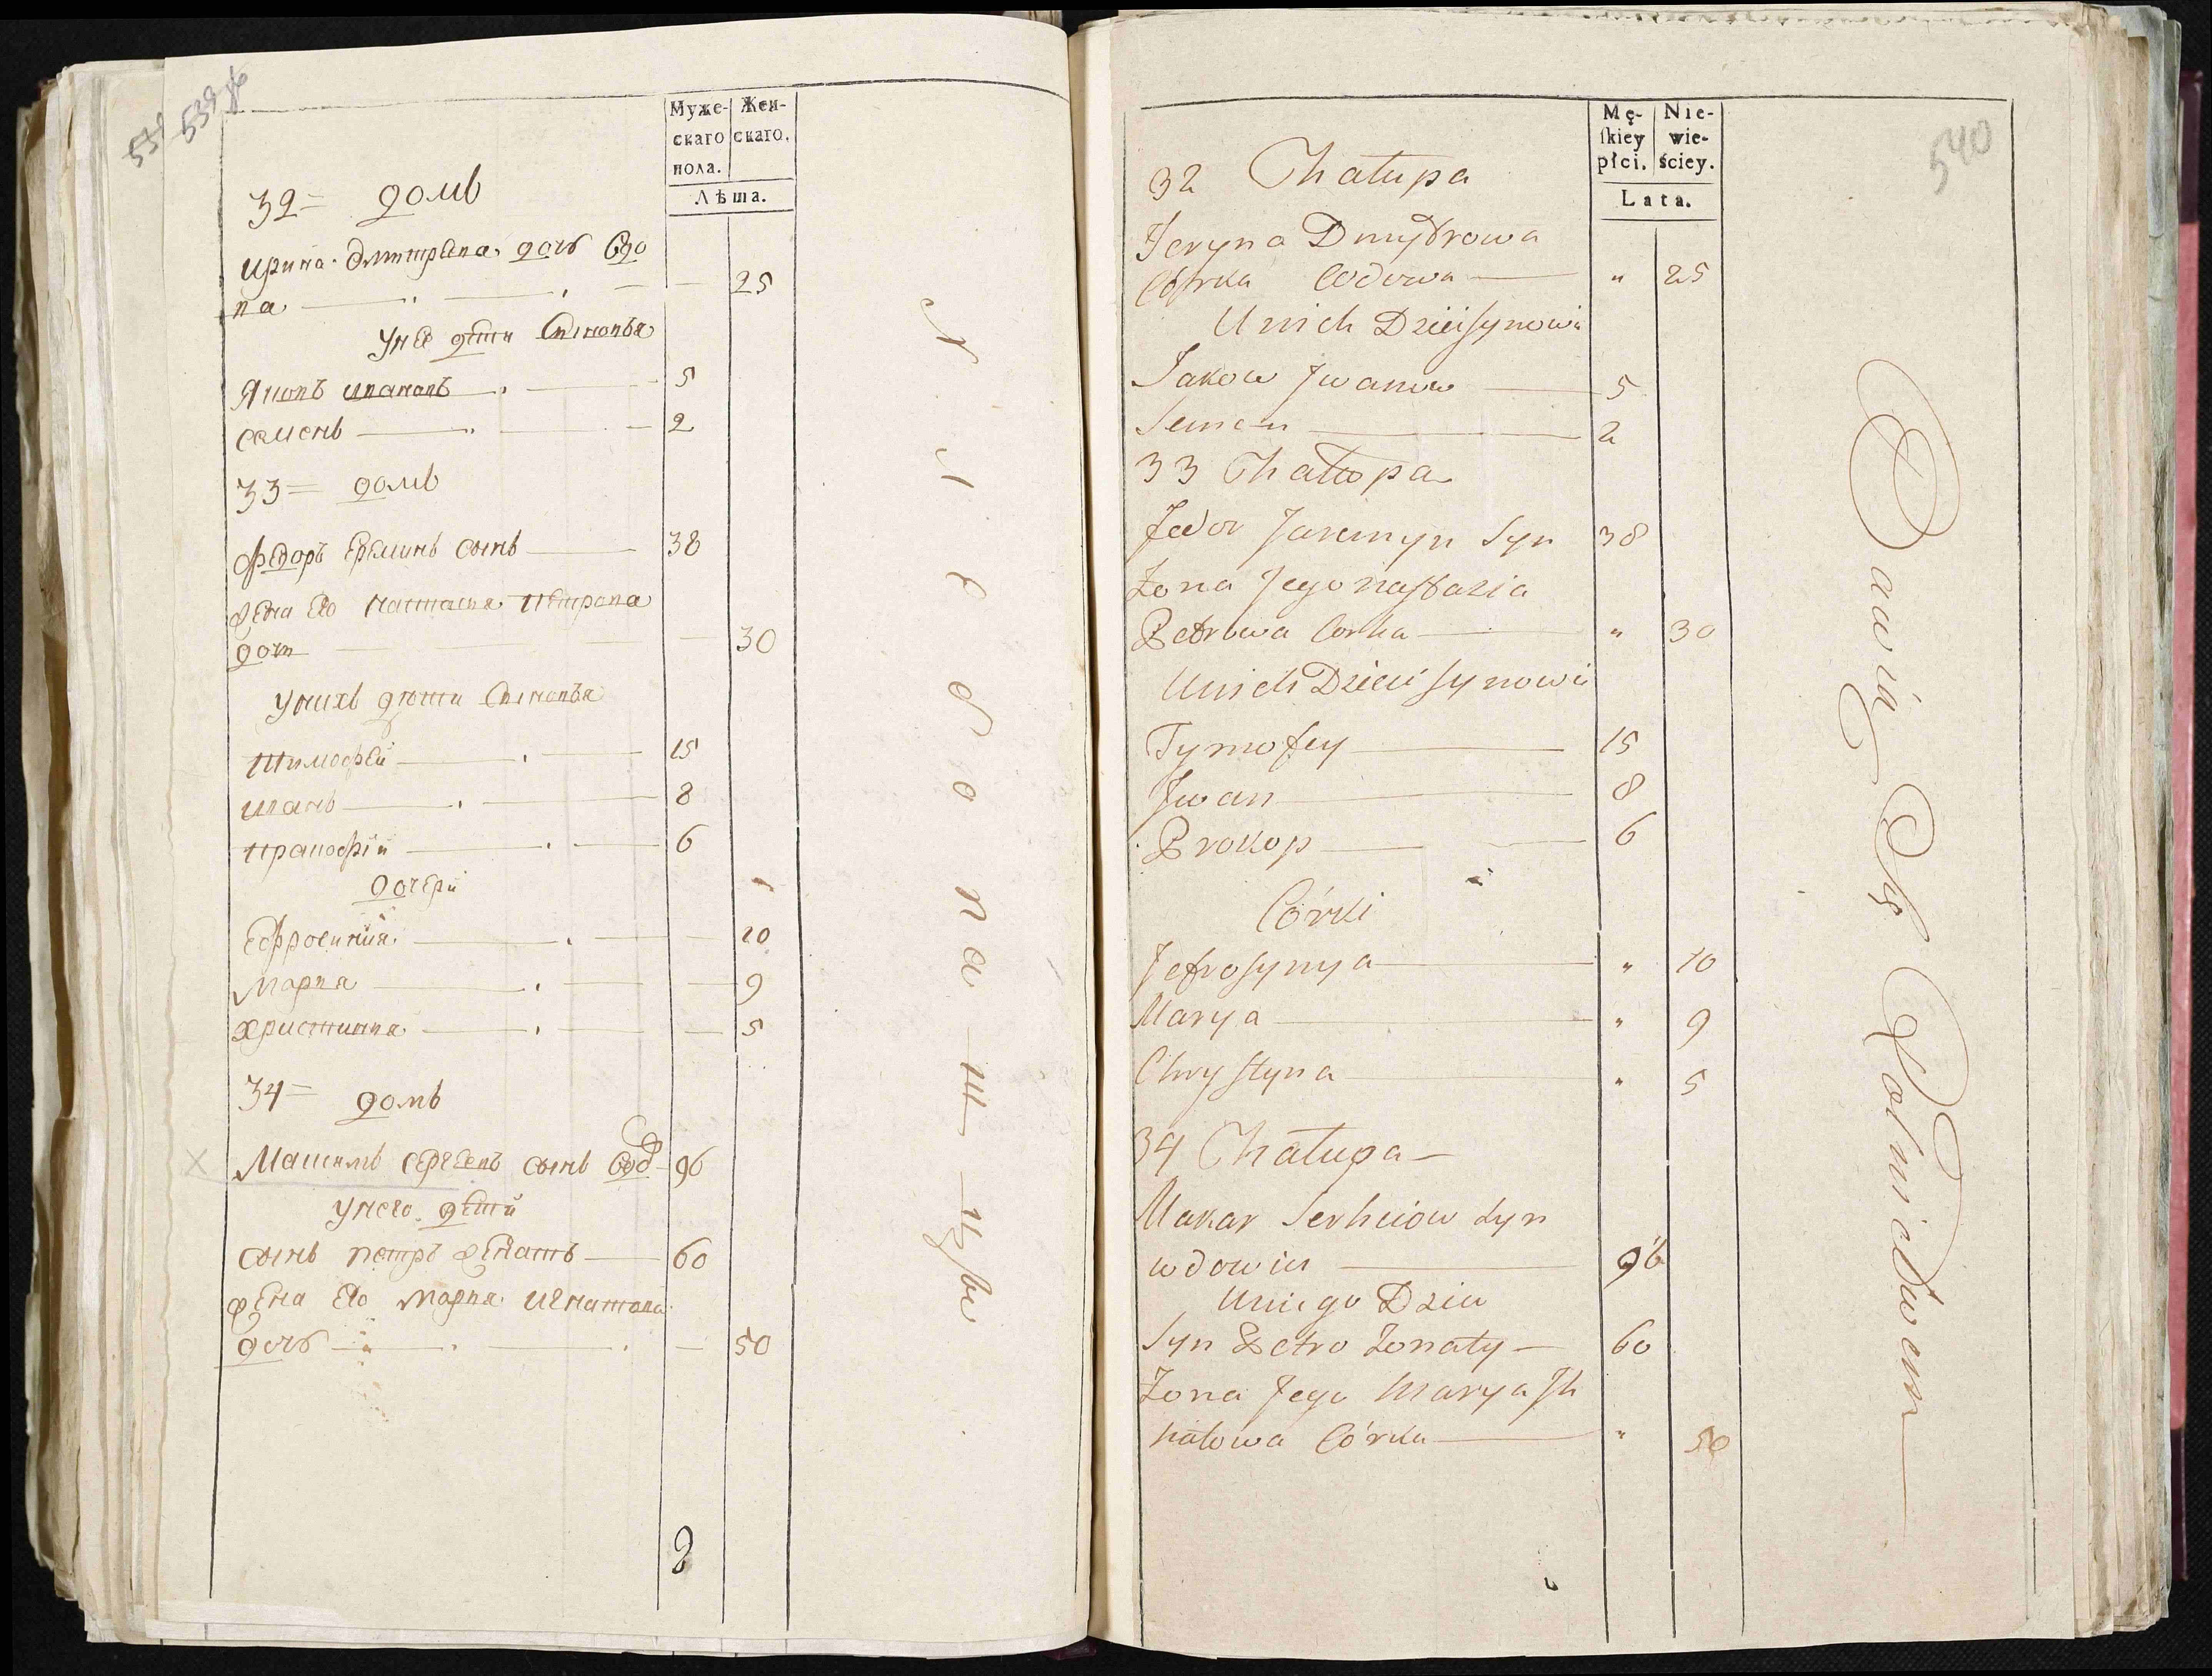 539 об
Муже- Жен-
скаго скаго.
пола.
Лѣта.
32= домъ
Ирина Дмитрева дочь вдо
ва 25
У нее дѣти Сыновья
Яковъ Ивановъ 5
Семенъ 2
33= домъ
Федоръ Ереминъ сынъ 38
Жена Его Настасья Петрова
дочь 30
У нихъ дѣти Сыновья
Тимофей 15
Иванъ 8
Прокофій 6
дочери
Ефросиния 10
Марья 9
Христинья 5
34= домъ
сынъ вдов 96
У него дѣти
сынъ Петръ женатъ 60
Жена Его Марья Игнатова
дочь 50
8
540
Mę- Nie-
ſkiey wie-
płci. ściey.
Lata.
32 Chałupa
Jeryna Dmytrowa
Corka Wdowa „ 25
U nich Dzieci Synowie
Jakow Jwanow 5
Semen 2
33 Chałupa
Fedor Jaremyn Syn 38
Żona Jego Nastazia
Petrowa Corka „ 30
U nich Dzieci Synowie
Tymofey 15
Jwan 8
Prokop 6
Córki
Jefrosynya „ 10
Marya „ 9
Chrystyna „ 5
34 Chałupa
Makar Serheiow Syn
wdowiec 96
U niego Dzieci
Syn Petro Żonaty 60
Żona Jego Marya Jh
natowa Córka „ 50